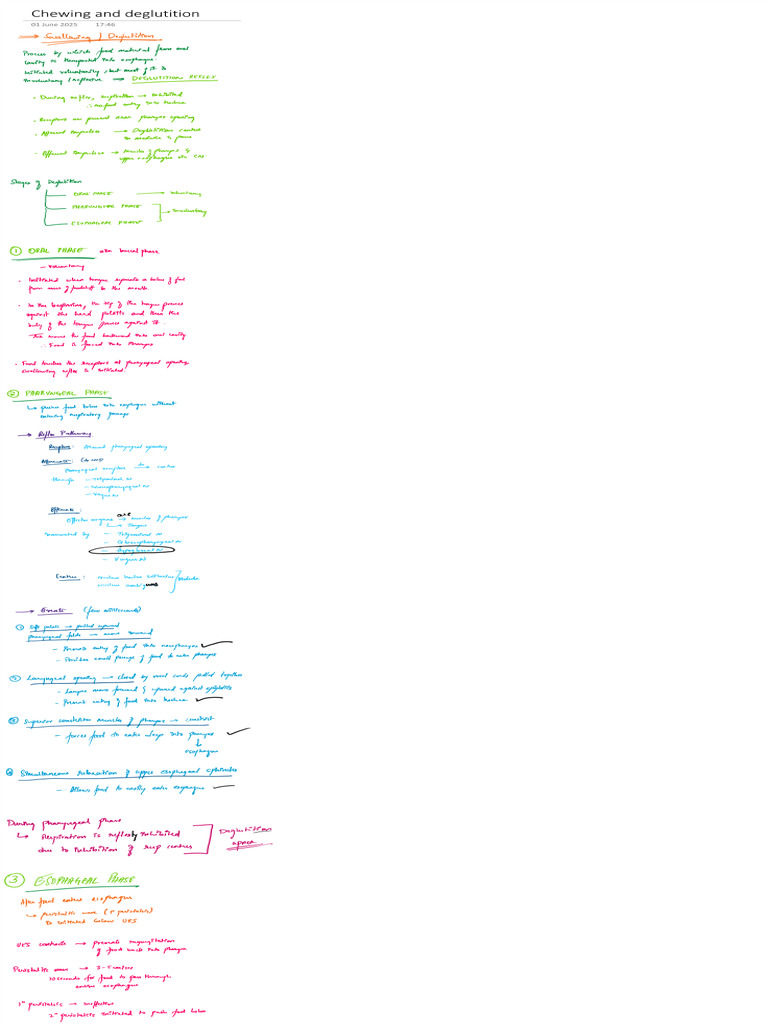 Chewing and deglutition
01 June 2025 17:46
Swallowing / Deglutition
Process by which food material from oral
cavity is transported into esophagus.
Initiated voluntarily, but most of it is
involuntary / reflexive → DEGLUTITION REFLEX
- During reflex, respiration → inhibited
∴ no food entry into trachea
- Receptors are present near pharynx opening
- Afferent impulses → Deglutition centre
in medulla & pons
- Efferent impulses → muscles of pharynx &
upper esophagus via CN
Stages of Deglutition
ORAL PHASE → voluntary
PHARYNGEAL PHASE
→ involuntary
ESOPHAGEAL PHASE
① ORAL PHASE aka buccal phase
- voluntary
• Initiated when tongue separates a bolus of food
from mass of foodstuff in the mouth.
• In the beginning, the tip of the tongue presses
against the hard palate and then the
body of the tongue presses against it.
This moves the food backward into oral cavity
∴ Food is forced into pharynx
• Food touches the receptors at pharyngeal opening
swallowing reflex is initiated
② PHARYNGEAL PHASE
↳ pushes food bolus into esophagus without
entering respiratory passage
→ Reflex Pathway
Receptors: Around pharyngeal opening
Afferents:
Pharyngeal receptors to centre
through - Trigeminal N
- Glossopharyngeal N
- Vagus N
Efferents:
Effector organs are → muscles of pharynx
↳ Tongue
innervated by - Trigeminal N
- Glossopharyngeal N
- Hypoglossal N
- Vagus N
Centre: nucleus tractus solitarius
nucleus ambiguus
medulla
→ Events (few milliseconds)
① Soft palate → pulled upward
pharyngeal folds → move inward
- Prevents entry of food into nasopharynx
- Provides small passage of food to enter pharynx
② Laryngeal opening → closed by vocal cords pulled together
- Larynx move forward & upward against epiglottis
- Prevent entry of food into trachea
③ Superior constrictor muscles of pharynx → constrict
- forces food to enter deep into pharynx
↓
esophagus
④ Simultaneous relaxation of upper esophageal sphincter
- Allows food to easily enter esophagus
During pharyngeal phase
↳ Respiration is reflexly inhibited
due to inhibition of resp centres
Deglutition
apnea
③ ESOPHAGEAL PHASE
After food enters esophagus
↳ peristaltic wave (1° peristalsis)
is initiated below UES
UES contracts → prevents regurgitation
of food back into pharynx
Peristaltic wave → 3-5 cm/sec
10 seconds for food to pass through
entire esophagus
1° peristalsis → ineffective
2° peristalsis initiated to push food below